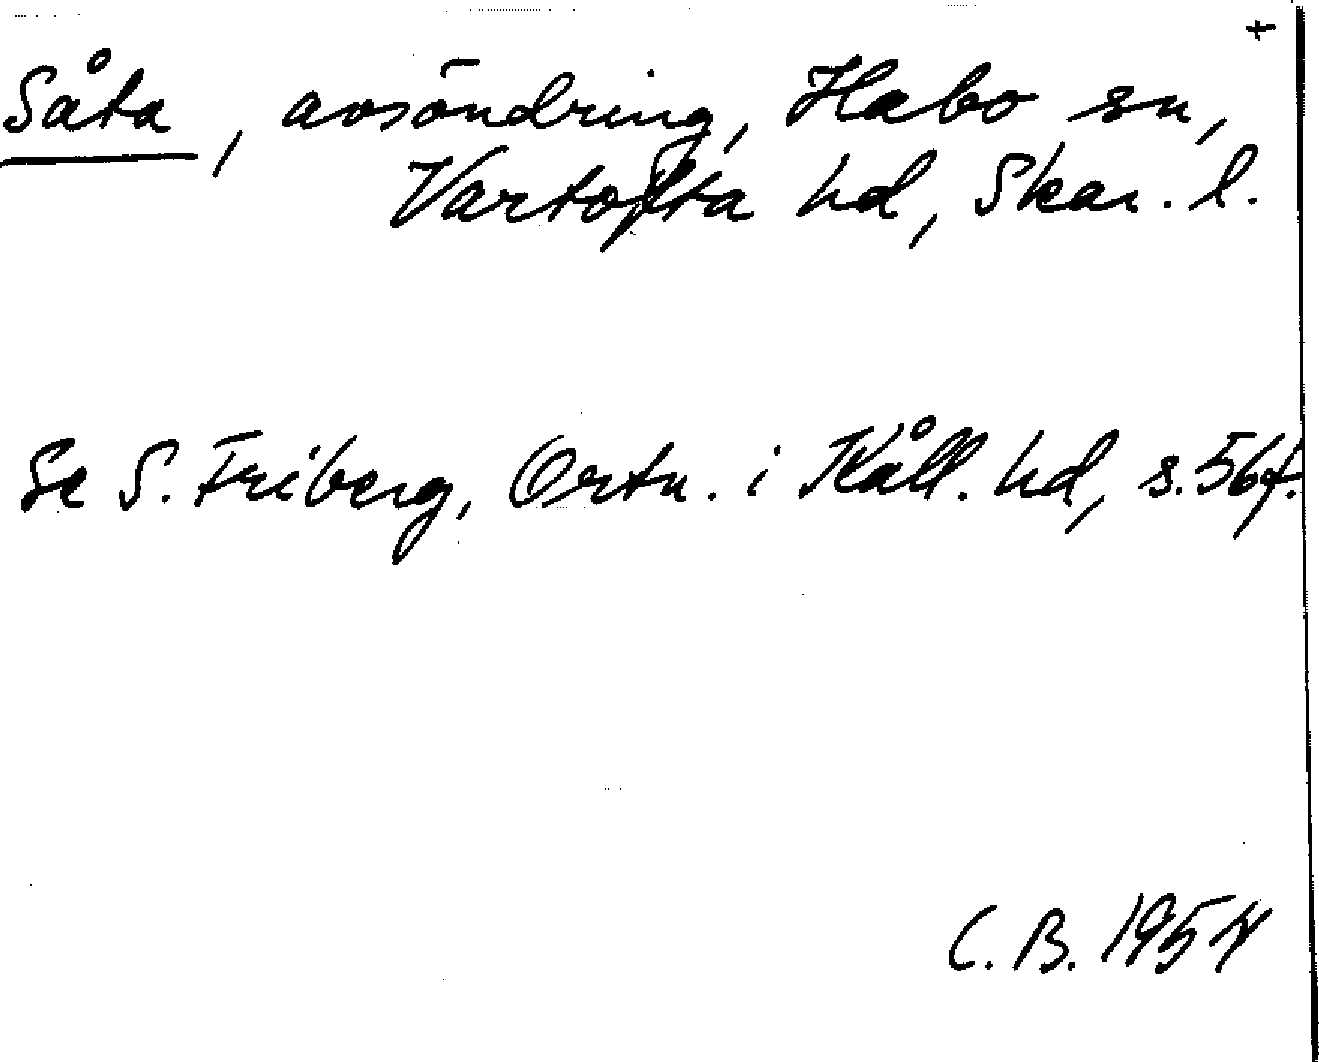 +
Såta, avsöndring, Habo sn,
Vartofta hd, Skar. l.
Se S. Friberg, Ortn. i Kåll. hd, s. 56f.
C. B. 1954